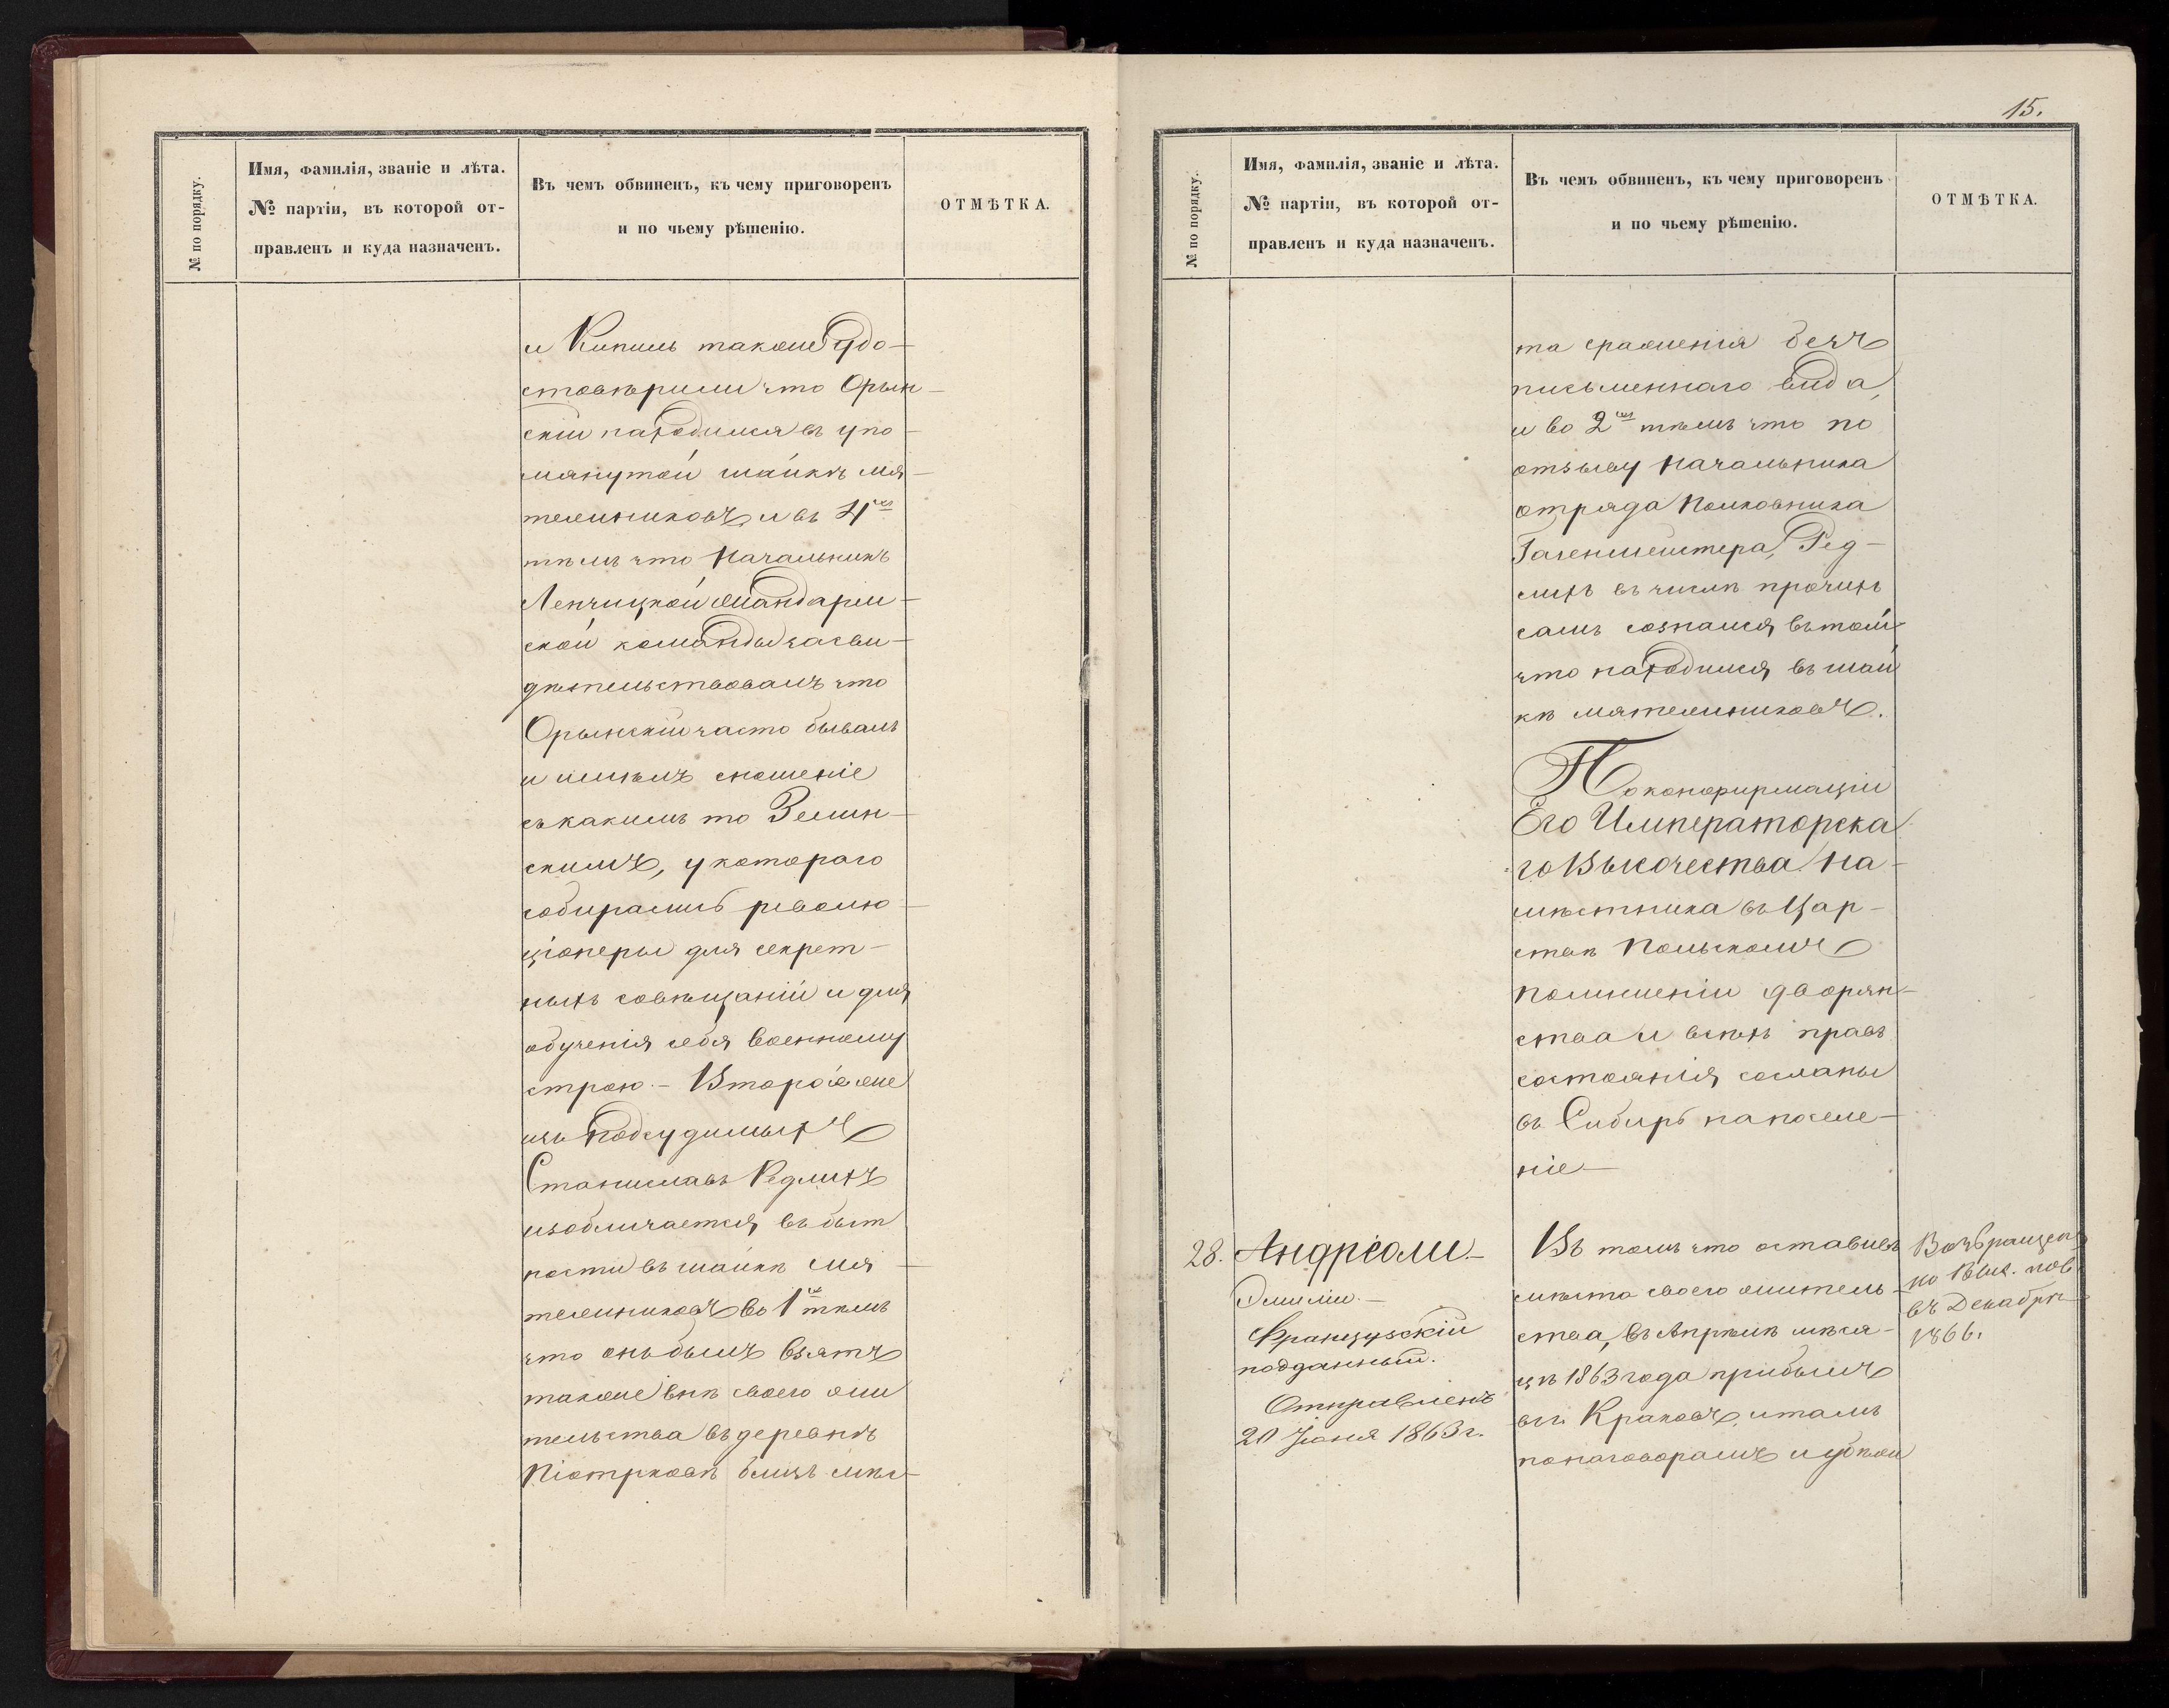 № по порядку.
Имя, фамилія, званіе и лѣта.
№ партіи, въ которой от-
правленъ и куда назначенъ.
Въ чемъ обвиненъ, къ чему приговоренъ
и по чьему рѣшенію.
ОТМѢТКА.
и Кипишь также удо-
стовѣрили что Орын-
скій находился въ упо-
мянутой шайкѣ мя-
тежниковъ и въ 4хъ
тѣмъ что Начальникъ
Ленчицкой жандарм-
ской команды засви-
дѣтельствовалъ что
Орынскій часто бывалъ
и имѣлъ сношеніе
съ какимъ то Зелин-
скимъ, у котораго
собирались револю-
ціонеры для секрет-
ныхъ совѣщаній и для
обученія себя военному
строю. – Второй же
изъ подсудимыхъ
Станиславъ Редлихъ
изобличается въ быт
ности въ шайкѣ мя-
тежниковъ во 1хъ тѣмъ
что онъ былъ взятъ
также внѣ своего жи
тельства въ деревнѣ
Піотрковѣ близь мѣс-
15.
№ по порядку.
Имя, фамилія, званіе и лѣта.
№ партіи, въ которой от-
правленъ и куда назначенъ.
Въ чемъ обвиненъ, къ чему приговоренъ
и по чьему рѣшенію.
ОТМѢТКА.
та сраженія безъ
письменнаго вида,
и во 2хъ тѣмъ что по
отзыву Начальника
отряда Полковника
Гагенмейстера, Ред-
лихъ въ числѣ прочихъ
самъ сознался въ томъ
что находился въ шай
кѣ мятежниковъ.
По конфирмаціи
Его Императорска
го Высочества На-
мѣстника въ Цар-
ствѣ Польскомъ
по лишеніи дворян-
ства и всѣхъ правъ
состоянія сосланы
въ Сибирь на поселе-
ніе –
28. Андріоли. –
Эмилій. –
Французскій
подданный.
Отправленъ
20 Іюня 1863 г.
Въ томъ что оставивъ
мѣсто своего житель-
ства, въ Апрѣлѣ мѣся-
цѣ 1863 года прибылъ
въ г. Краковъ, и тамъ
по наговорамъ и убѣж
Возвращенъ
по Выс. пов.
въ Декабрѣ
1866.